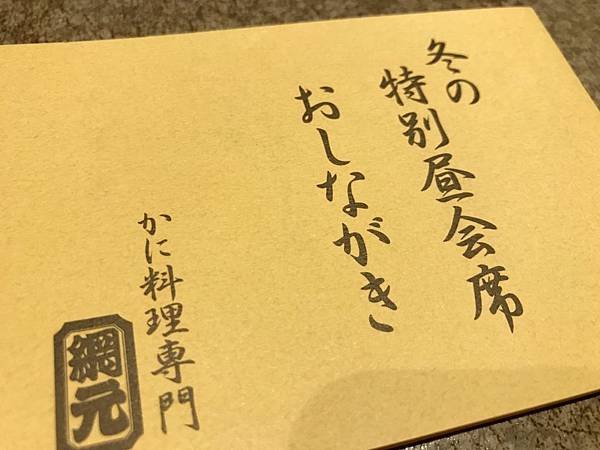 冬の
特別昼会席
おしながき
かに料理専門
網元